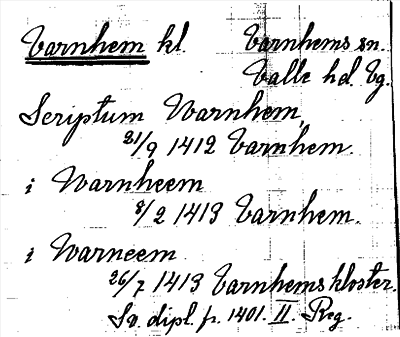 Varnhem kl. Varnhems sn.
Valle hd. Vg.
Scriptum Warnhem,
21/9 1412 Varnhem.
i Warnheem
8/2 1413 Varnhem.
i Warneem
26/7 1413 Varnhems kloster.
Sv. dipl. fr. 1401. II. Reg.